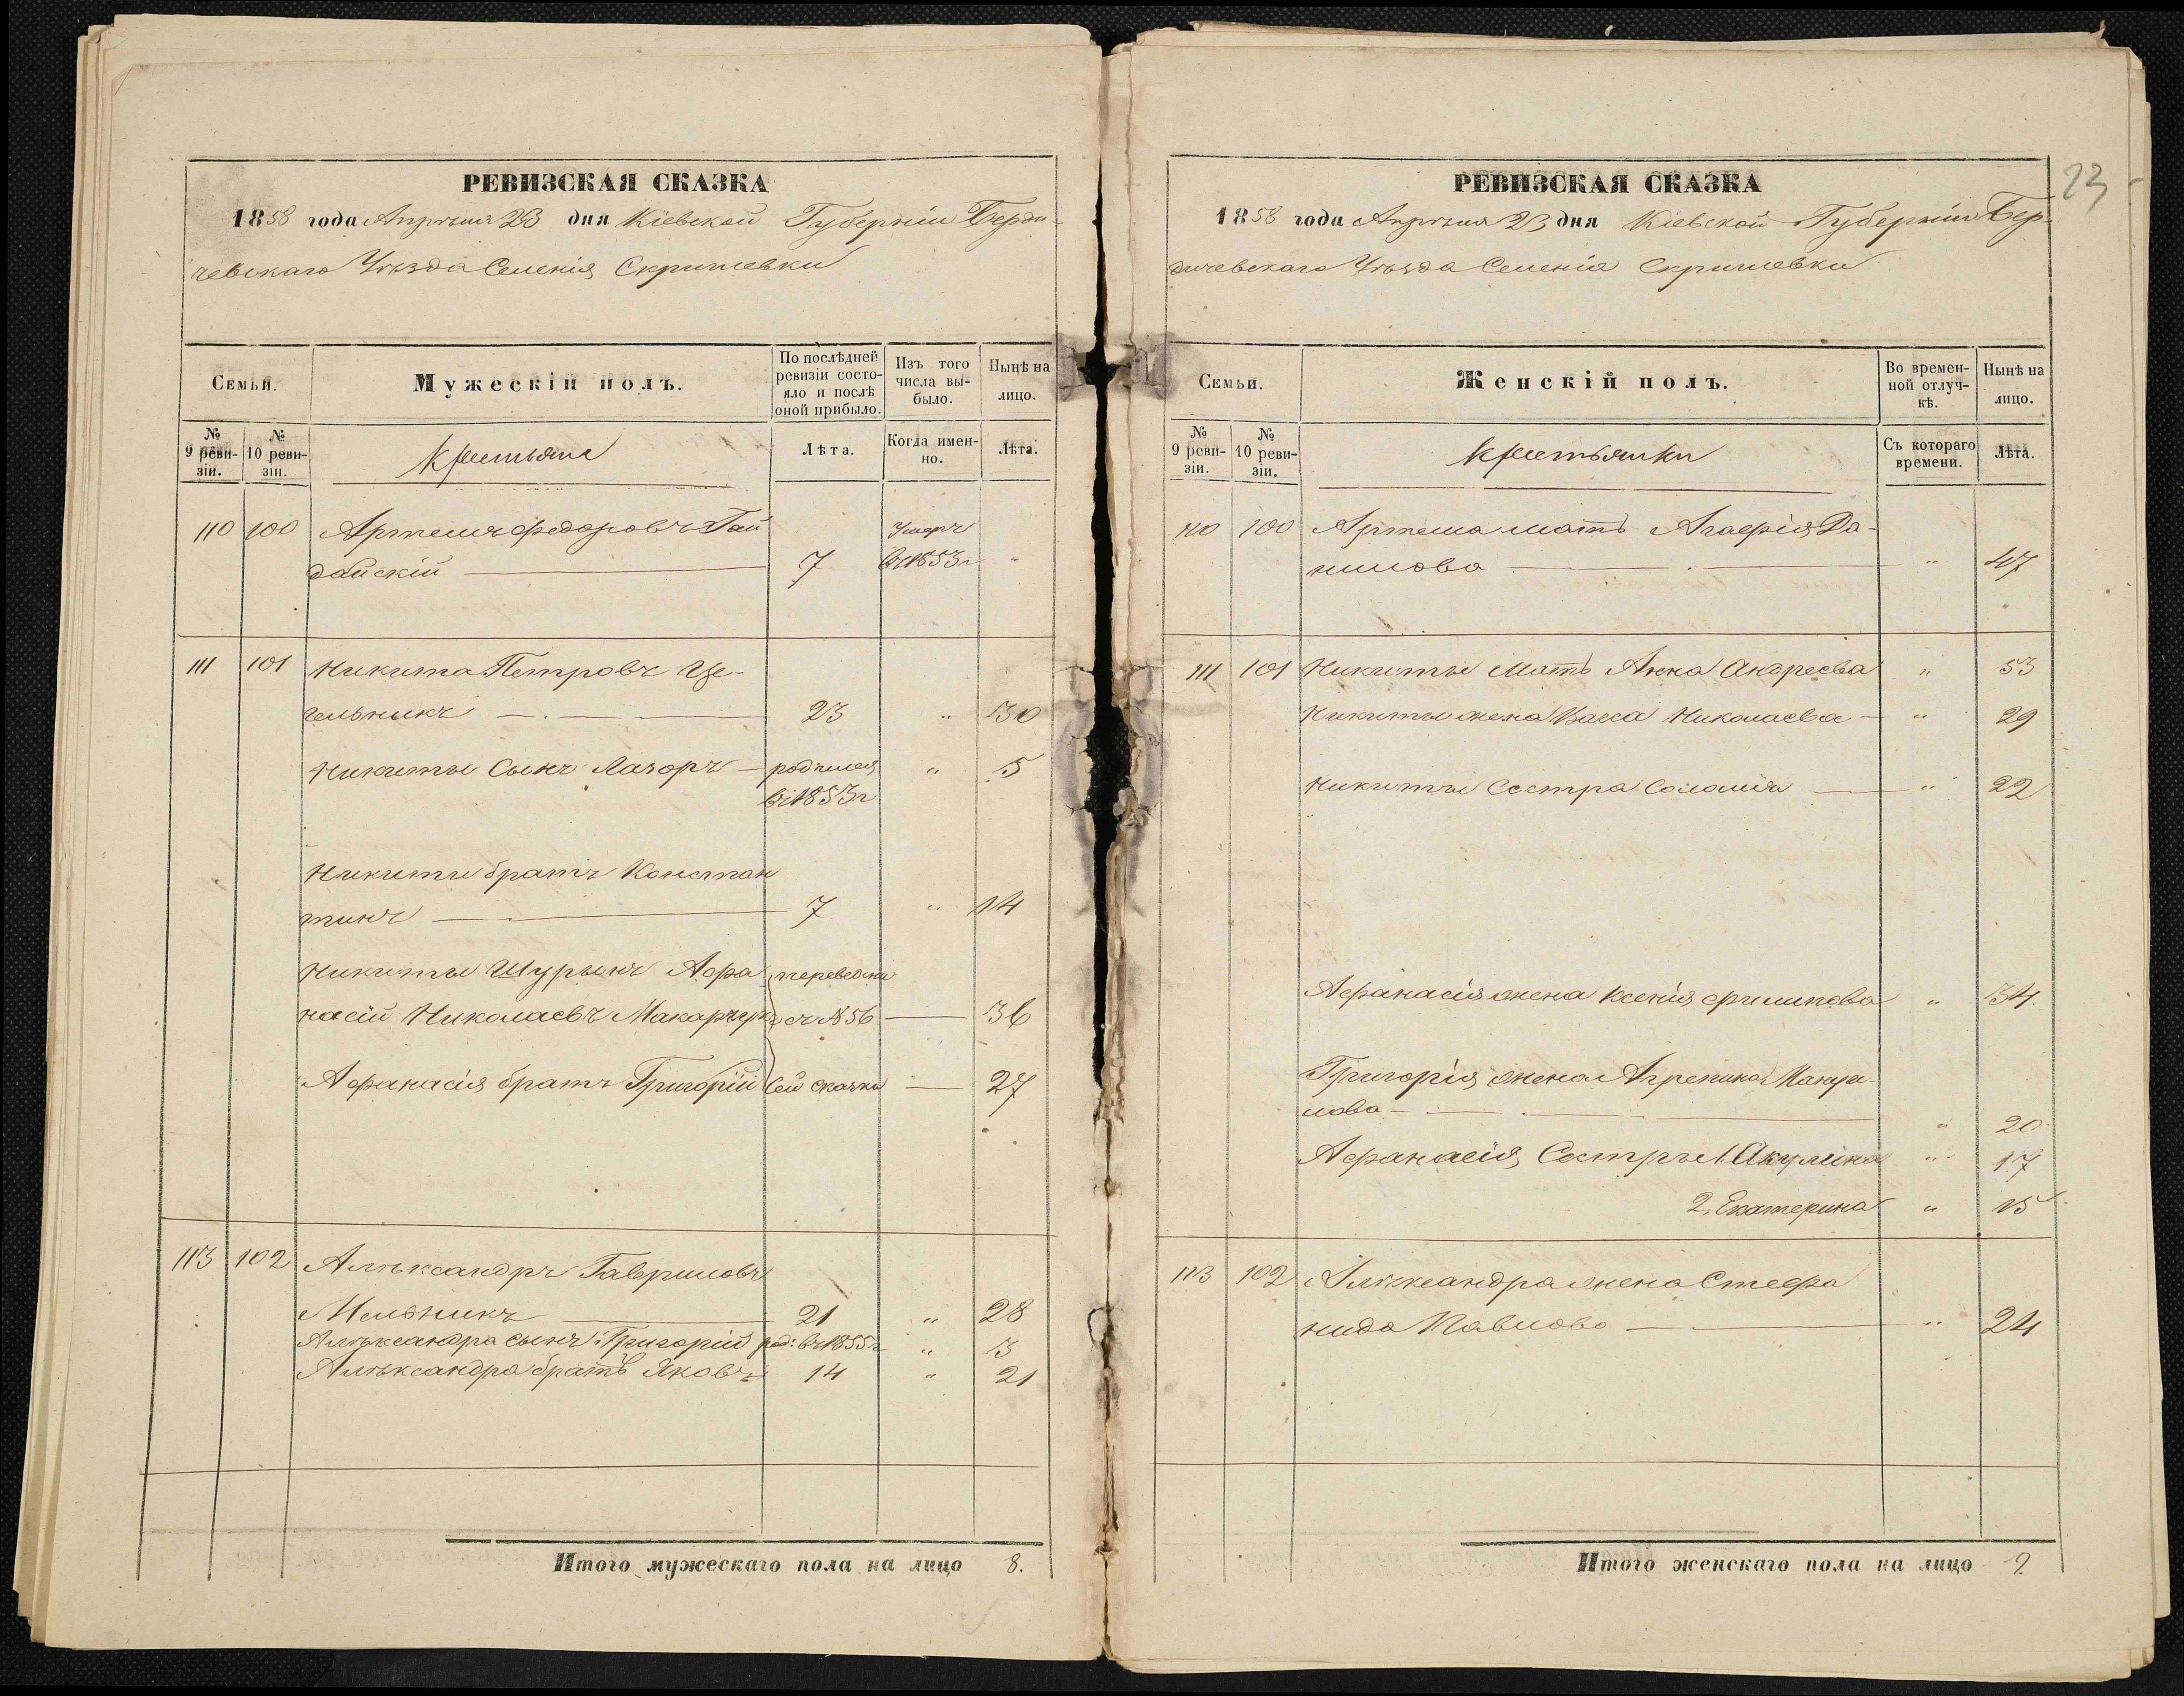 РЕВИЗСКАЯ СКАЗКА
1858 года Апрѣля 23 дня Кіевской Губерніи Берди-
чевскаго Уѣзда Селенія Скришевки
Семьи.
Мужескій полъ.
По послѣдней ревизіи состояло и послѣ оной прибыло.
Изъ того числа выбыло.
Нынѣ на лицо.
№ 9 ревизіи.
№ 10 ревизіи.
Крестьяне
Лѣта.
Когда именно.
Лѣта.
110 100 Артемъ Федоровъ Гай Умеръ
дайскій 7 въ 1853 г "
111 101 Никита Петровъ Це-
гельникъ 23 " 30
Никиты Сынъ Лазоръ родился " 5
въ 1853 г
Никиты братъ Констан
тинъ 7 " 14
Никиты Шурынъ Афа переведены
насій Николаевъ Макарчукъ съ №56 36
Афанасія братъ Григорій сей сказки 27
113 102 Алѣксандръ Гавриловъ
Мельникъ 21 " 28
Алѣксандра сынъ Григорій род: въ 1855 г " 3
Алѣксандра братъ Яковъ 14 " 21
Итого мужескаго пола на лицо 8.
23
РЕВИЗСКАЯ СКАЗКА
1858 года Апрѣля 23 дня Кіевской Губерніи Бер-
дичевскаго Уѣзда Селенія Скришевки
Семьи.
Женскій полъ.
Во временной отлучкѣ.
Нынѣ на лицо.
№ 9 ревизіи.
№ 10 ревизіи.
Крестьянки
Съ котораго времени.
Лѣта.
110 100 Артема мать Агафія Да-
нилова " 47
111 101 Никиты Мать Анна Андреева " 53
Никиты жена Васса Николаева " 29
Никиты Сестра Соломія " 22
Афанасія жена Ксенія Филипова " 34
Григорія жена Агрепина
лова " 20
Афанасія Сестры 1 Акулина " 17
2, Екатерина " 15
113 102 Алѣксандра жена Стефа
нида Павлова " 24
Итого женскаго пола на лицо 9.